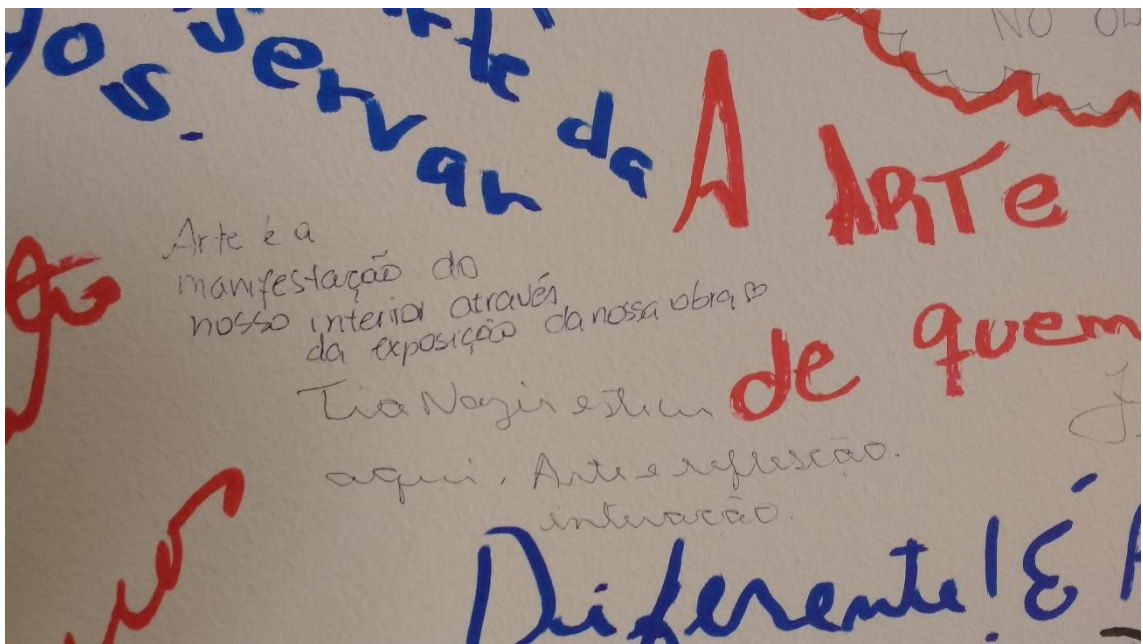 servar
te da
A ARTE
Arte é a
manifestação do
nosso interior através
da exposição da nossa obra
de quem
Tia Nazir esteve
aqui, Arte e reflesção.
interação.
Diferente! É
NO